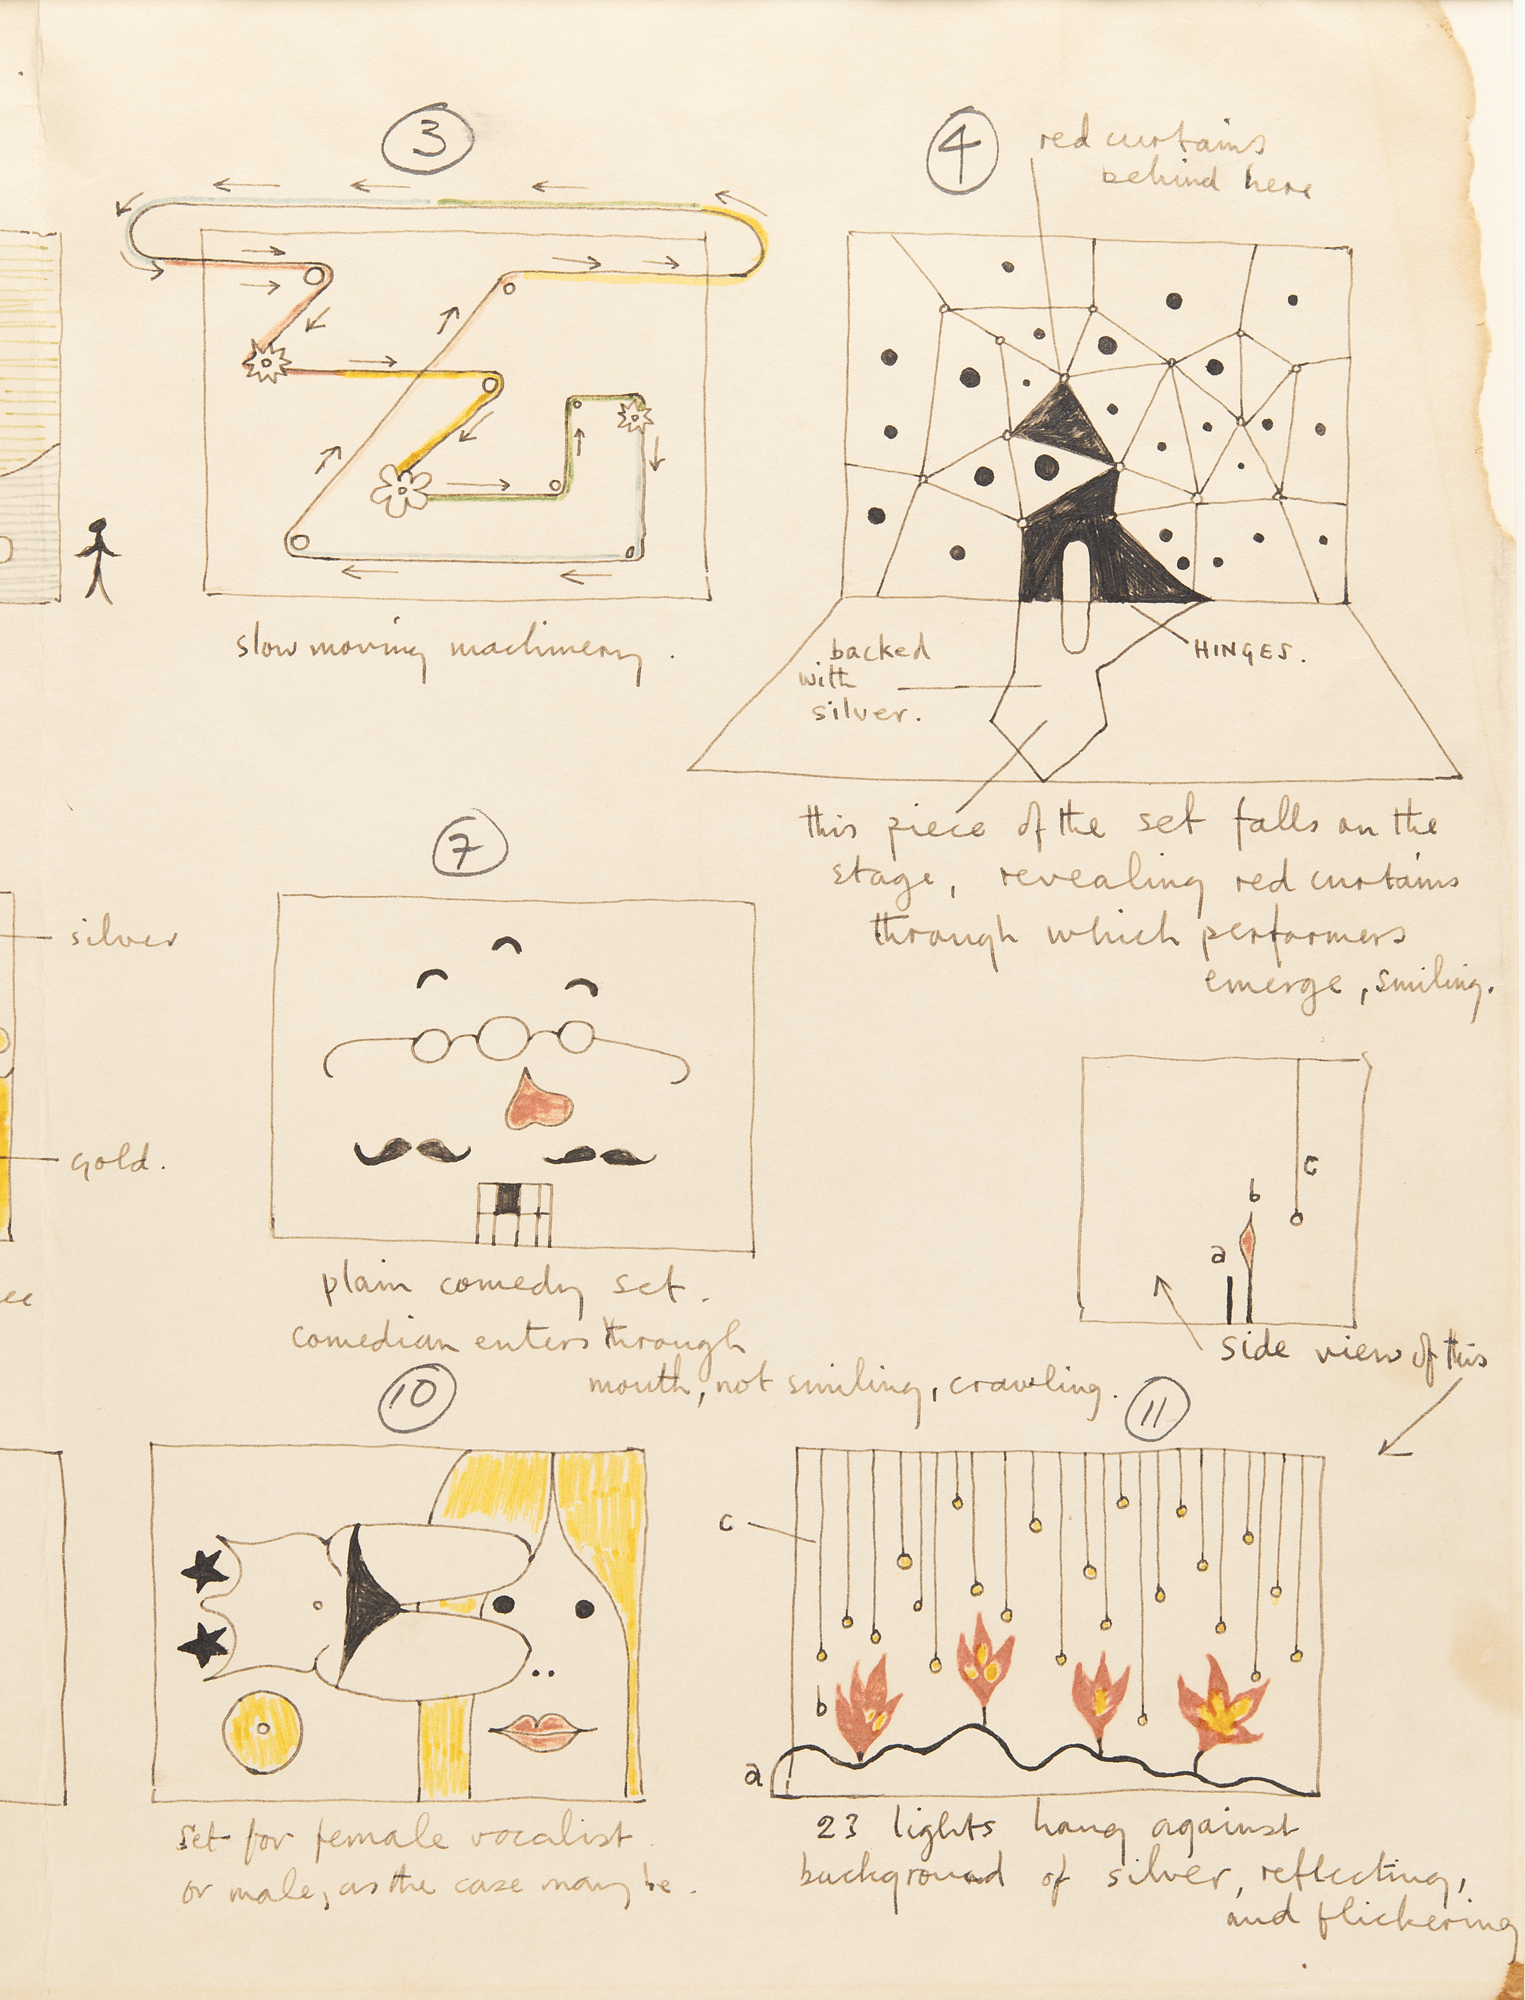 3
4
red curtains
behind here
slow moving machinery.
backed
with
silver.
HINGES.
this piece of the set falls on the
stage, revealing red curtains
through which performers
emerge, smiling.
7
silver
gold.
plain comedy set.
comedian enters through
mouth, not smiling, crawling.
c
b
a
side view of this
10
11
set for female vocalist
or male, as the case may be.
c
b
a
23 lights hang against
background of silver, reflecting,
and flickering